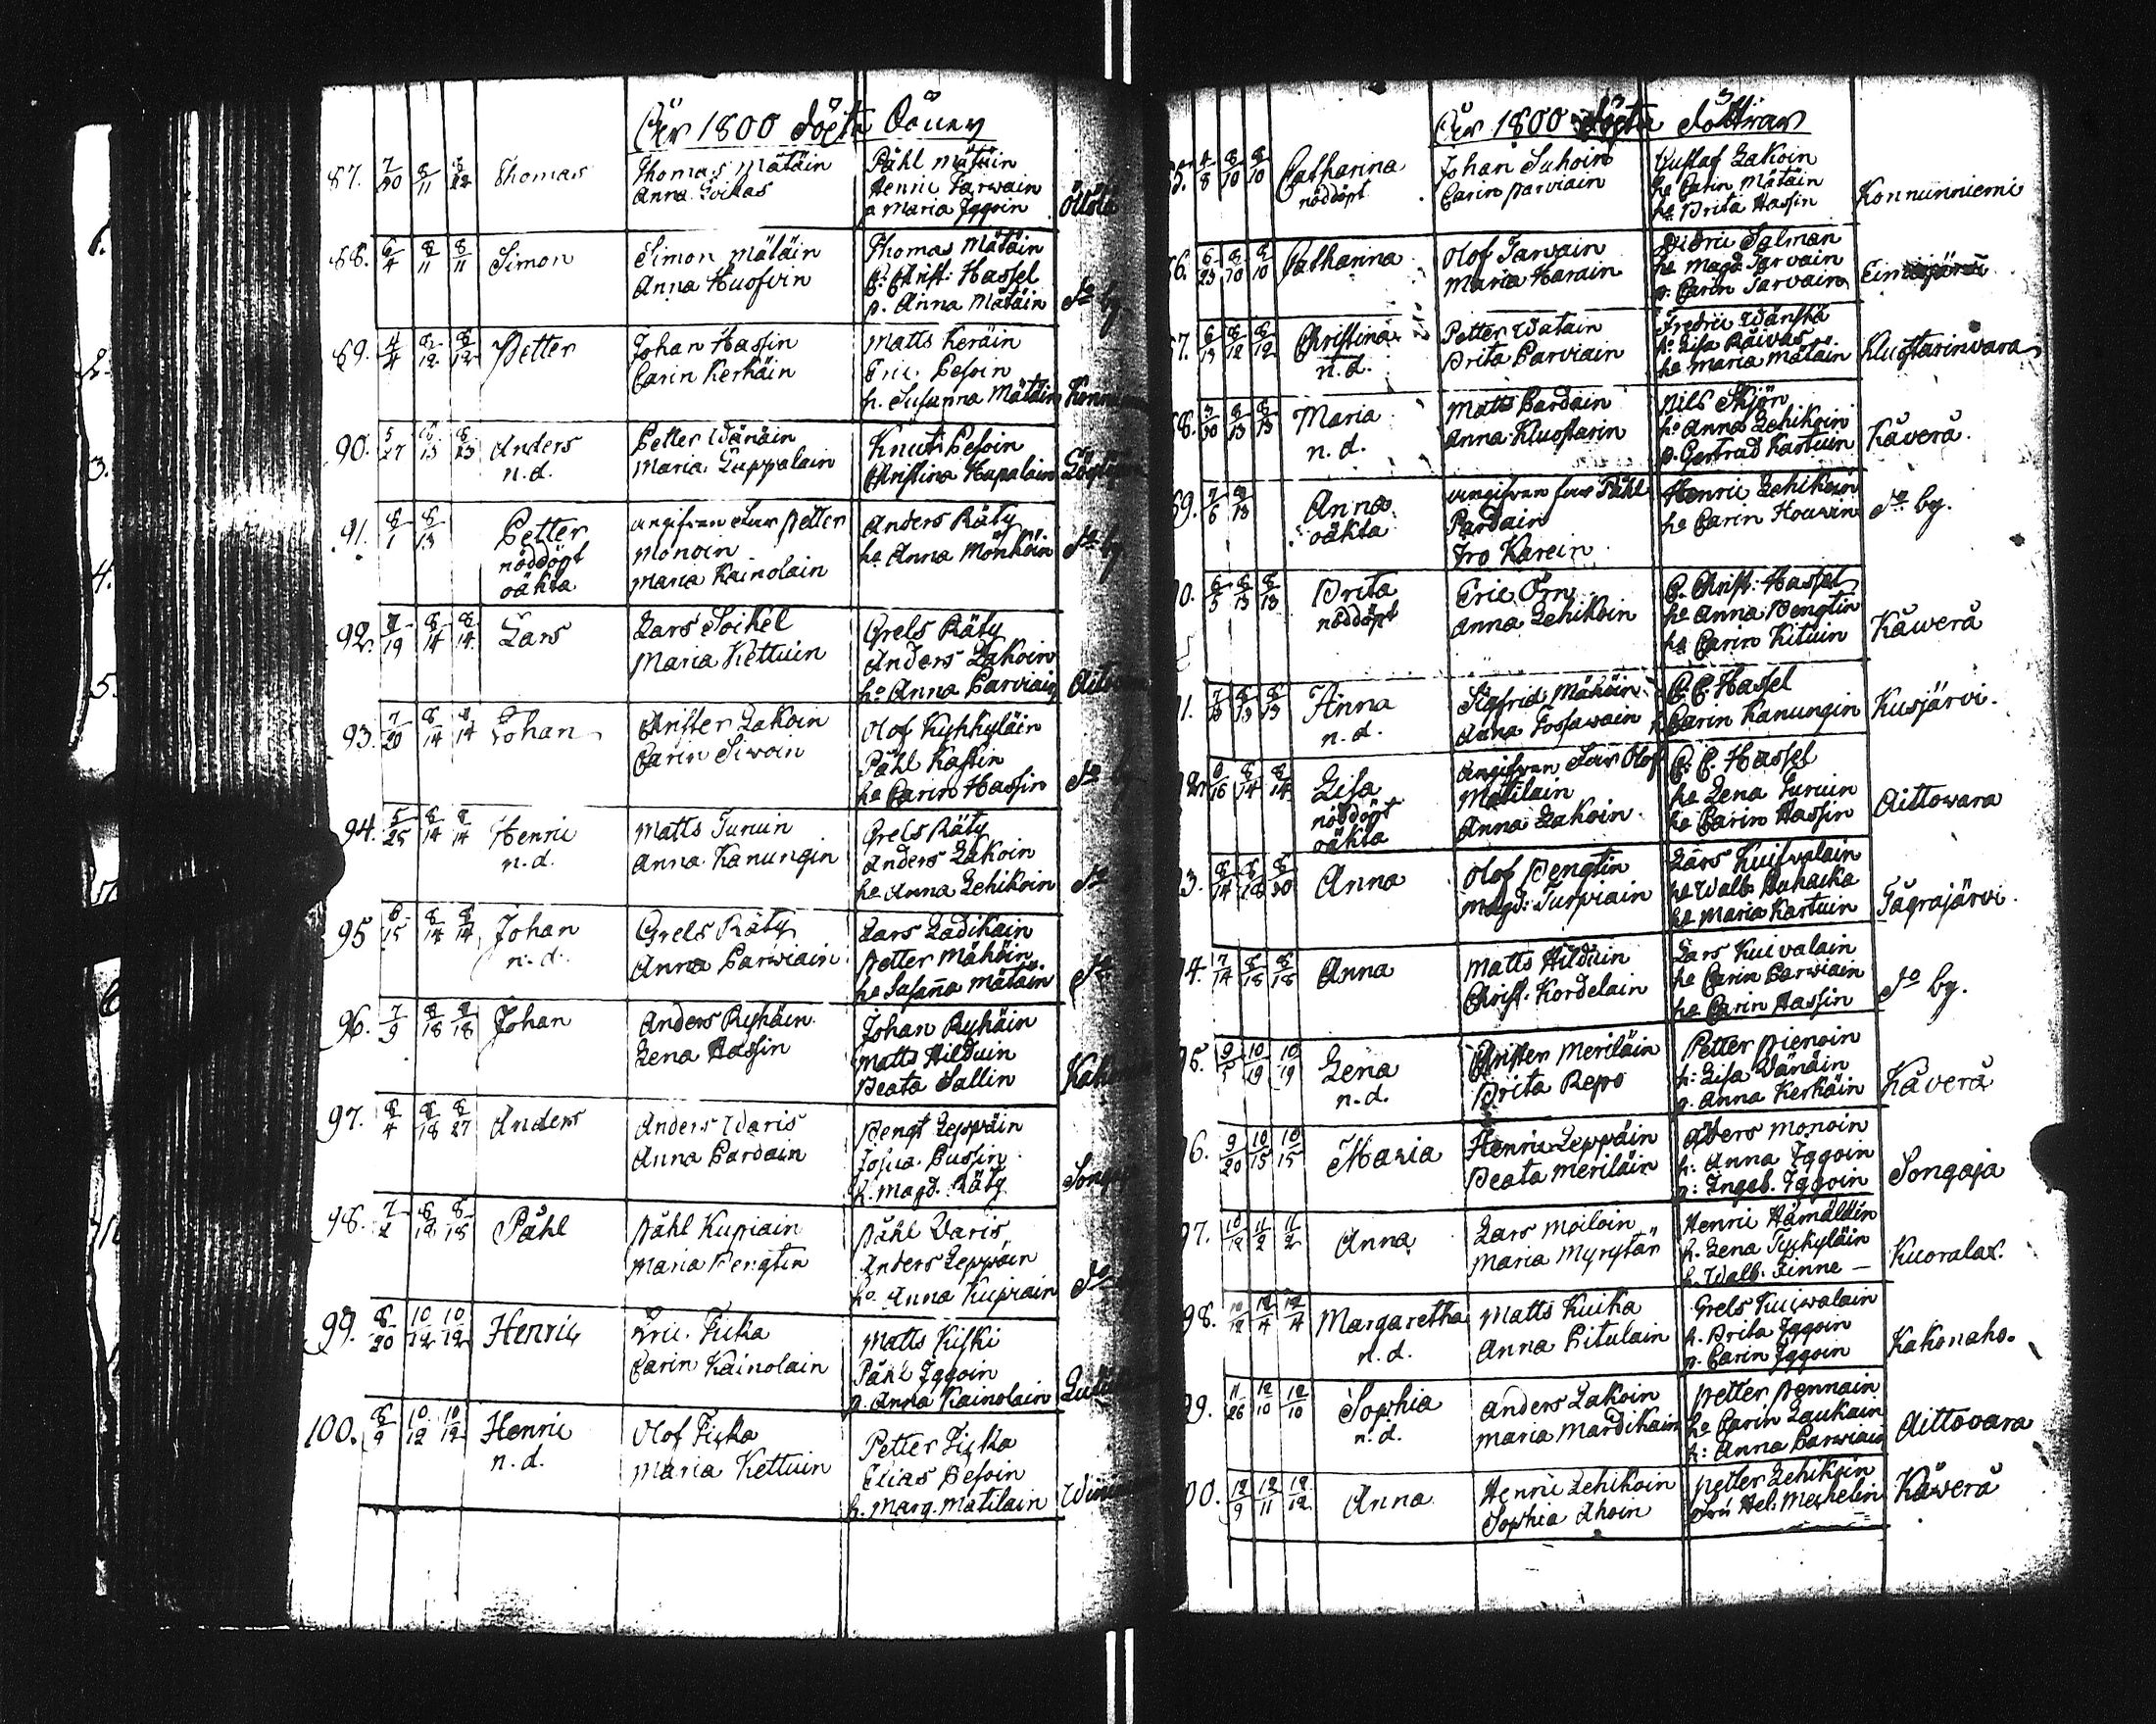 År 1800 födte Söner
87. 7/30 8/11 8/22 Thomas
Thomas Mätäin
Anna Loikas
Påhl Mätäin
Henric Tarwain
p Maria Iggoin
88. 6/4 8/11 8/11 Simon
Simon Mätäin
Anna Huofvin
Thomas Mätäin
C: Christ: Hassel
p. Anna Mätäin
So by
89. 4/4 8/12 8/12 Petter
Johan Hassin
Carin Kerkäin
Matts Keräin
Eric Pesoin
h. Susanna Mätäin
90. 5/27 8/13 8/23 Anders
n.d.
Petter Wänäin
Maria Luppalain
Knut Pesoin
Christina Hapalain
91. 8/1 8/13 Petter
nöddöpt
oäkta
angifven Far Petter
Monoin
Maria Kainolain
Anders Räty
he Anna Mönköin
So by
92. 7/19 8/14 8/14 Lars
Lars Soikel
Maria Kettuin
Grels Räty
Anders Lakoin
ho Anna Parviain
93. 7/20 8/14 8/14 Johan
Christer Lakoin
Carin Siwoin
Olof Kyhkyläin
Påhl Kassin
he Carin Hassin
So
94. 5/25 8/14 8/14 Henric
n.d.
Matts Turuin
Anna Kanungin
Grels Räty
Anders Lakoin
he Anna Lehikoin
So
95 6/15 8/14 8/14 Johan
n.d.
Grels Räty
Anna Parwiain
Lars Ladikain
Petter Mähöin
he Susana Mätäin
So
96. 7/9 8/18 8/18 Johan
Anders Ryhäin
Lena Hassin
Johan Ryhäin
Matts Hilduin
Beata Sallin
97. 8/4 8/18 8/27 Anders
Anders Waris
Anna Pardain
Bengt Leppäin
Josua Pussin
h. Magd. Räty
98. 7/2 8/18 8/18 Påhl
Påhl Kupiain
Maria Bengtin
Påhl Varis
Anders Leppäin
ho Anna Kupiain
So
99. 8/20 10/12 10/12 Henric
Eric Ticka
Carin Kainolain
Matts Kiski
Påhl Iggoin
p. Anna Kainolain
100. 8/9 10/12 10/12 Henric
n.d.
Olof Ticka
Maria Kettuin
Petter Ticka
Elias Pesoin
h. Marg. Matilain
År 1800 födta döttrar
5. 4/8 8/10 8/10 Catharina
nöddöpt
Johan Suhoin
Carin Parviain
Gustaf Lakoin
he Carin Mätäin
he Brita Hassin
Konnunniemi
6. 6/23 8/10 8/10 Catharina
Olof Tarvain
Maria Harain
Didric Salman
he Magd: Tarvain
p. Carin Tarvain
7. 6/13 8/12 8/12 Christina
n.d.
Petter Watain
Brita Parviain
Fredric Wänskä
h: Lisa Räivas
he Maria Mätäin
Kluostarinvara
8. 3/30 8/13 8/13 Maria
n.d.
Matts Pardain
Anna Kluostarin
Nils Skjön
ho Anna Lehikoin
p. Gertrud Kartuin
Käverä.
9. 7/6 8/13 Anna
oäkta
angifven far Påhl
Pardain
Iro Karein
Henric Lehikoin
he Carin Houvin
So by.
0. 6/5 8/13 8/13 Brita
nöddöpt
Eric Örn
Anna Lehikoin
C. Christ: Hassel
he Anna Bengtin
he Carin Kituin
Käwerä
1. 7/13 8/13 8/13 Anna
n.d.
Sigfrid Mähöin
Anna Tossawain
C. C. Hassel
h Carin Kanungin
Kusjärvi.
2. 6/16 8/14 8/14 Lisa
nöddöpt
oäkta
angifven Far Olof
Matilain
Anna Lakoin
C. C. Hassel
he Lena Turuin
he Carin Hassin
Aittowara
3. 8/14 8/18 8/30 Anna
Olof Bengtin
Magd: Turpiain
Lars Kuifvalain
he Walb. Puhacka
he Maria Kartuin
Tägräjärvi.
4. 7/14 8/18 8/18 Anna
Matts Hilduin
Christ: Kordelain
Lars Kuivalain
he Carin Parviain
he Carin Hassin
So by.
5. 9/5 10/19 10/19 Lena
n.d.
Christer Meriläin
Brita Repo
Petter Pienoin
h: Lisa Wänäin
p. Anna Kerkäin
Käverä
6. 9/20 10/15 10/15 Maria
Henric Leppäin
Beata Meriläin
Anders Monoin
h: Anna Iggoin
p: Ingeb. Iggoin
Songaja
7. 10/12 11/2 11/2 Anna
Lars Moiloin
Maria Myrytär
Henric Hämäläin
h. Lena Tyckyläin
h. Walb. Finne —
Kuoralax.
98. 10/12 12/4 12/4 Margaretha
n.d.
Matts Kuika
Anna Pitulain
Grels Kuivalain
h. Brita Iggoin
p. Carin Iggoin
Kakonaho.
9. 11/26 12/10 12/10 Sophia
n.d.
Anders Lakoin
Maria Mardikain
Petter Pennain
he Carin Laukain
h: Anna Parwiain
Aittovara
00. 12/9 12/11 12/12 Anna
Henric Lehikoin
Sophia Ahoin
Petter Lehikoin
Fru Hel: Mechelin
Käwerä